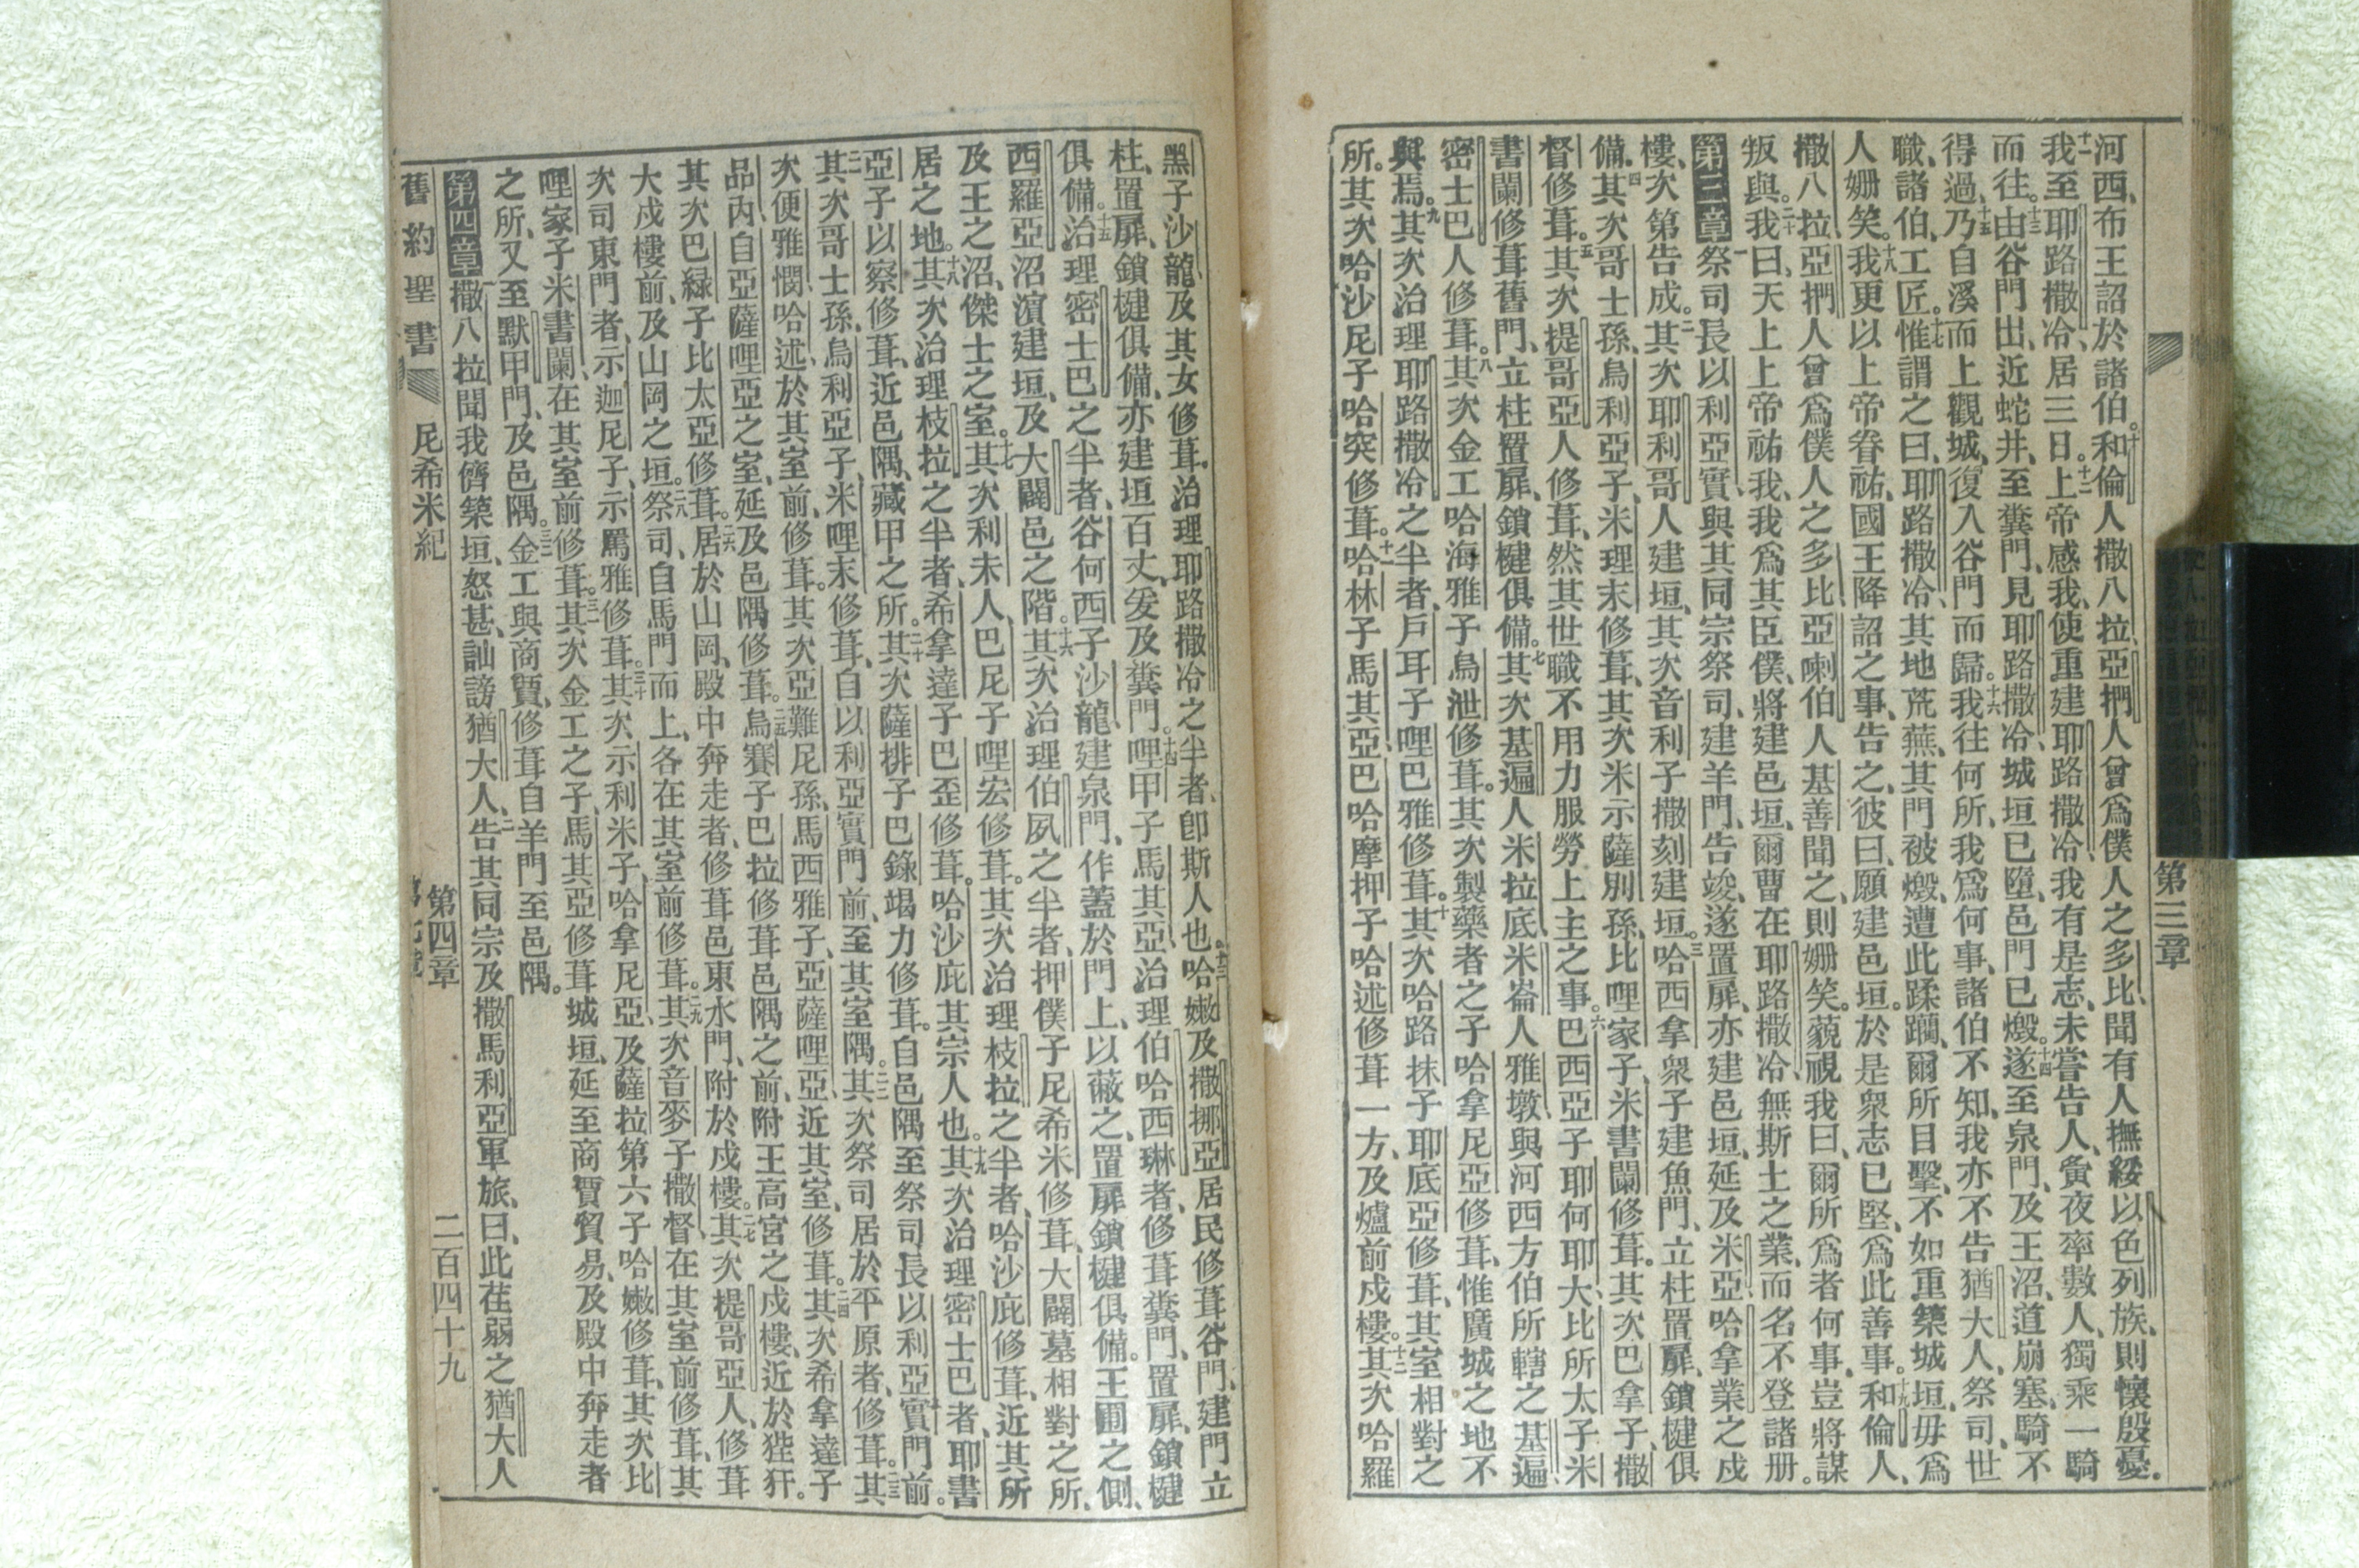 第三章
河西、布王詔於諸伯。十和倫人撒八拉、亞捫人曾爲僕人之多比、聞有人撫綏以色列族、則懷殷憂。
十一我至耶路撒冷、居三日。十二上帝感我、使重建耶路撒冷、我有是志、未嘗告人、夤夜率數人、獨乘一騎
而往。十三由谷門出、近蛇井、至糞門、見耶路撒冷城垣已墮、邑門已燬。十四遂至泉門、及王沼、道崩塞、騎不
得過、十五乃自溪而上觀城、復入谷門而歸。十六我往何所、我爲何事、諸伯不知、我亦不告猶大人、祭司、世
職、諸伯、工匠。十七惟謂之曰、耶路撒冷、其地荒蕪、其門被燬、遭此蹂躪、爾所目擊、不如重築城垣、毋爲
人姍笑。十八我更以上帝眷祐、國王降詔之事、告之、彼曰、願建邑垣。於是衆志已堅、爲此善事。十九和倫人、
撒八拉、亞捫人曾爲僕人之多比、亞喇伯人基善聞之、則姍笑。藐視我曰、爾所爲者何事、豈將謀
叛與。二十我曰、天上上帝祐我、我爲其臣僕、將建邑垣、爾曹在耶路撒冷無斯土之業、而名不登諸册。
第三章 一祭司長以利亞實、與其同宗祭司、建羊門、告竣、遂置扉、亦建邑垣、延及米亞、哈拿業之戍
樓、次第告成。二其次耶利哥人建垣、其次音利子撒刻建垣。三哈西拿衆子建魚門、立柱置扉、鎖楗俱
備。四其次哥士孫、烏利亞子、米理末修葺、其次米示薩別孫、比哩家子、米書闌修葺。其次巴拿子、撒
督修葺。五其次提哥亞人修葺、然其世職不用力服勞上主之事。六巴西亞子耶何耶大、比所太子米
書闌修葺舊門、立柱置扉、鎖楗俱備。七其次基遍人米拉底、米崙人雅墩、與河西方伯所轄之基遍、
密士巴人修葺。八其次金工哈海雅子烏泄修葺。其次製藥者之子哈拿尼亞修葺、惟廣城之地不
與焉。九其次治理耶路撒冷之半者、戶耳子哩巴雅修葺。十其次哈路抹子耶底亞修葺、其室相對之
所。其次哈沙尼子哈突修葺。十一哈林子馬其亞、巴哈摩押子哈述修葺一方、及爐前戍樓。十二其次哈羅
黑子沙龍及其女修葺、治理耶路撒冷之半者、卽斯人也。十三哈嫩及撒挪亞居民修葺谷門、建門立
柱、置扉、鎖楗俱備、亦建垣百丈、爰及糞門。十四哩甲子馬其亞、治理伯哈西琳者、修葺糞門、置扉、鎖楗
俱備。十五治理密士巴之半者、谷何西子沙龍、建泉門、作蓋於門上、以蔽之、置扉鎖楗俱備。王囿之側、
西羅亞沼濵建垣、及大闢邑之階。十六其次治理伯夙之半者、押僕子尼希米修葺、大闢墓相對之所、
及王之沼、傑士之室。十七其次利未人、巴尼子哩宏修葺。其次治理枝拉之半者、哈沙庇修葺、近其所
居之地。十八其次治理枝拉之半者、希拿達子巴歪修葺。哈沙庇其宗人也。十九其次治理密士巴者、耶書
亞子以察修葺、近邑隅、藏甲之所。二十其次薩排子巴錄竭力修葺。自邑隅至祭司長以利亞實門前。
二一其次哥士孫、烏利亞子、米哩末修葺、自以利亞實門前、至其室隅。二二其次祭司居於平原者、修葺。二三其
次便雅憫哈述、於其室前、修葺。其次亞難尼孫、馬西雅子、亞薩哩亞、近其室、修葺。二四其次希拿達子
品內自亞薩哩亞之室、延及邑隅修葺。二五烏賽子巴拉修葺邑隅之前、附王高宮之戍樓、近於狴犴。
其次巴緑子比太亞修葺。二六居於山岡、殿中奔走者、修葺邑東水門、附於戍樓。二七其次提哥亞人、修葺
大戍樓前、及山岡之垣。二八祭司、自馬門而上、各在其室前修葺。二九其次音麥子撒督、在其室前修葺、其
次司東門者、示迦尼子、示罵雅修葺。三十其次、示利米子、哈拿尼亞、及薩拉第六子哈嫩修葺、其次比
哩家子米書闌在其室前修葺。三一其次金工之子、馬其亞修葺城垣、延至商賈貿易、及殿中奔走者
之所、又至默甲門、及邑隅。三二金工與商賈、修葺自羊門至邑隅。
第四章 一撒八拉聞我儕築垣、怒甚、訕謗猶大人、二告其同宗及撒馬利亞軍旅、曰、此荏弱之猶大人
舊約聖書 尼希米紀 第四章 二百四十九